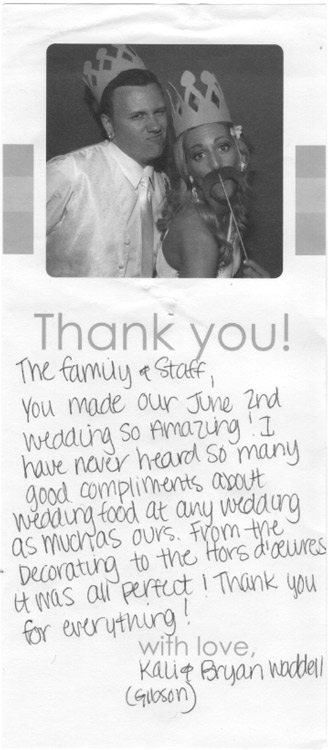 Thank you!
The family & Staff,
You made our June 2nd
wedding so Amazing! I
have never heard so many
good compliments about
wedding food at any wedding
as much as ours. From the
Decorating to the Hors d'oeuvres
it was all perfect! Thank you
for everything!
with love,
Kali & Bryan Waddell
(Gibson)